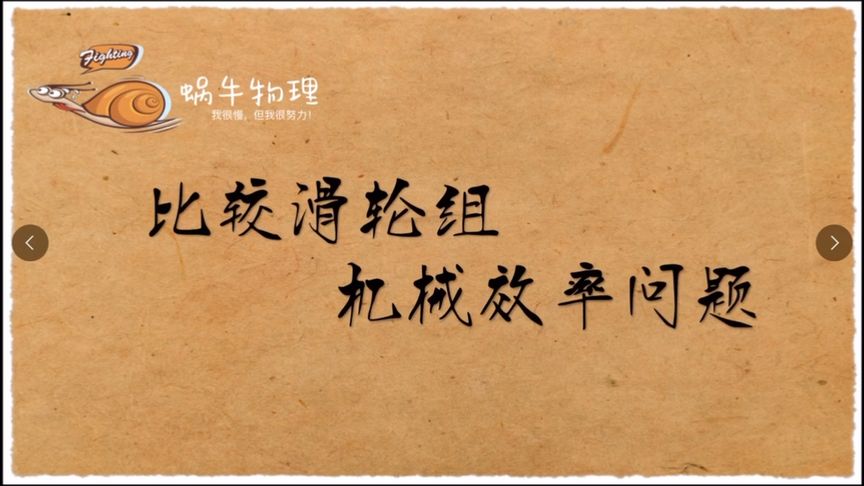 Fighting
蜗牛物理
我很慢，但我很努力！
比较滑轮组
机械效率问题